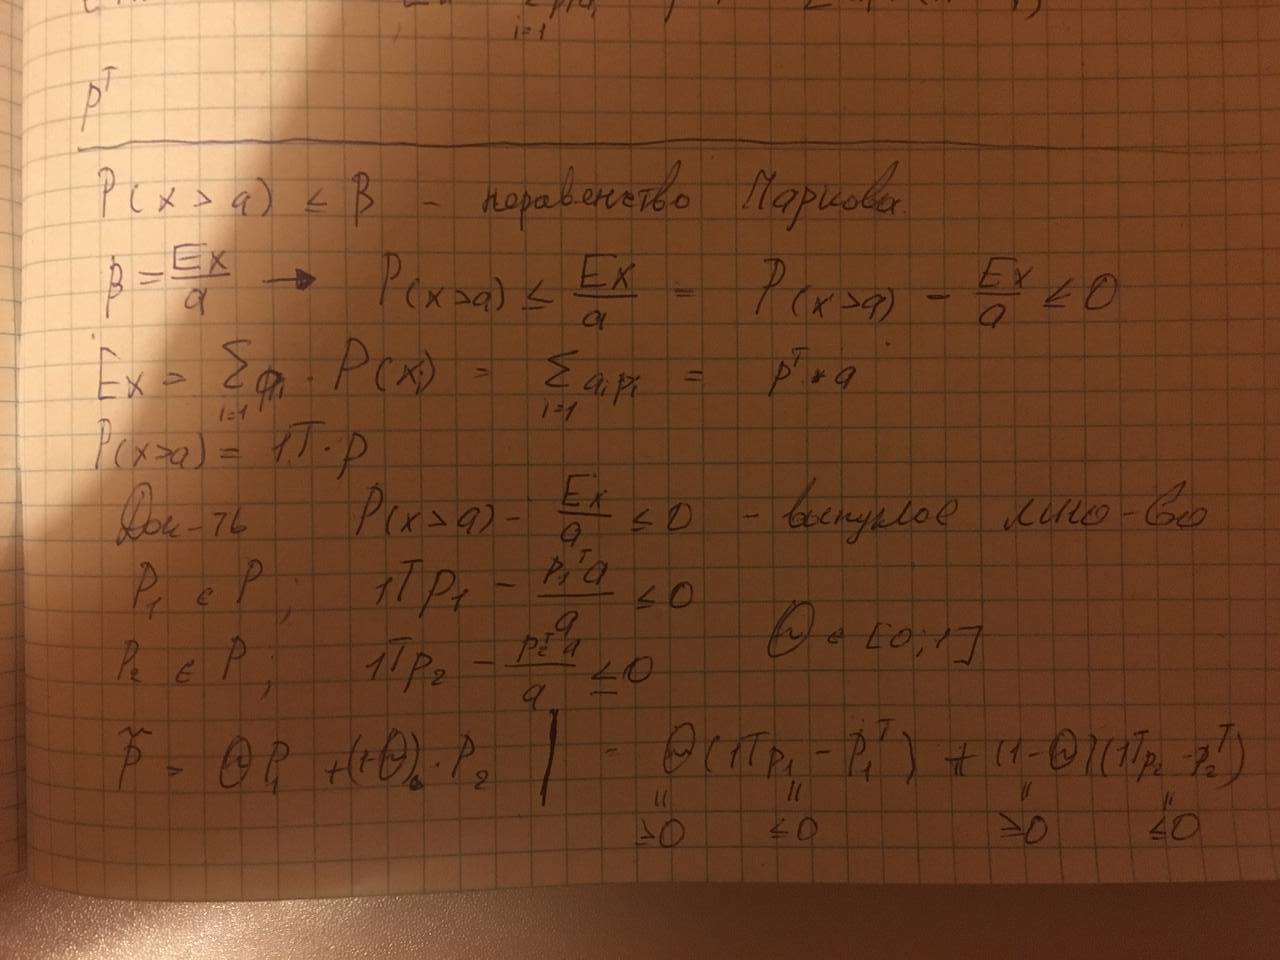 i=1
i=1
pᵀ
P(x > a) ≤ β - неравенство Маркова
β = Ex/a → P(x>a) ≤ Ex/a = P(x>a) - Ex/a ≤ 0
Ex = ∑ i=1 aᵢ · P(xᵢ) = ∑ i=1 aᵢpᵢ = pᵀ * a
P(x>a) = 1T · p
Док-ть P(x>a) - Ex/a ≤ 0 - выпуклое мно-во
P₁ ∈ P ; 1Tp₁ - p₁ᵀa/a ≤ 0
P₂ ∈ P ; 1ᵀp₂ - p₂ᵀa/a ≤ 0 Θ ∈ [0;1]
p̃ = ΘP₁ + (1-Θ) · P₂ | - Θ(1Tp₁ - p₁ᵀ) + (1-Θ)(1Tp₂ - p₂ᵀ)
" " " "
≥0 ≤0 ≥0 ≤0